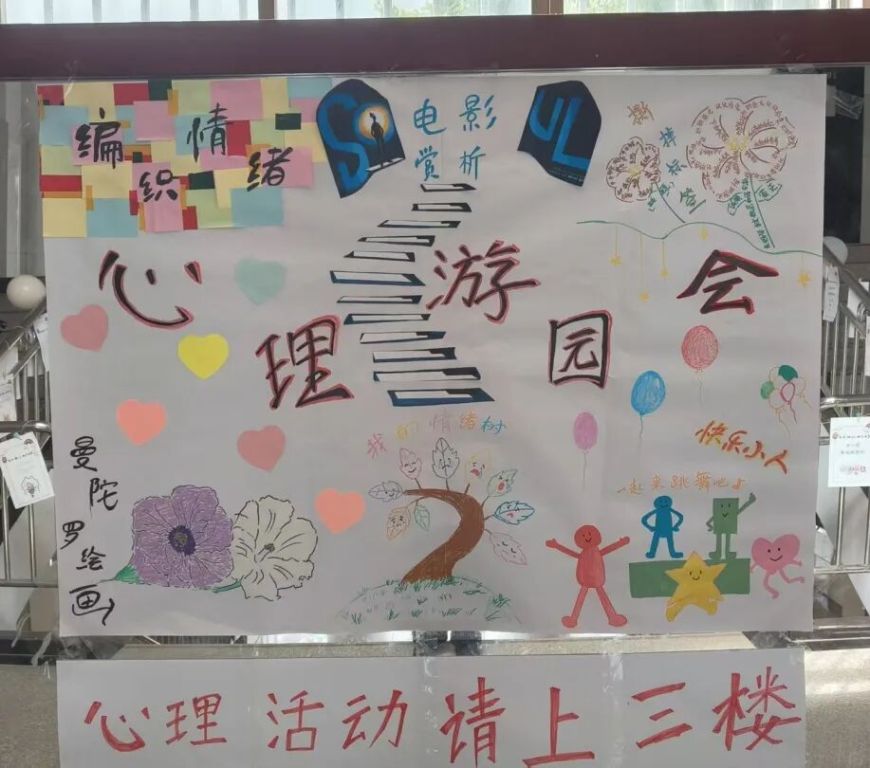 编织情绪
SOUL
电影
赏析
撕掉标签
心理游园会
我的情绪树
快乐小人
一起来跳舞吧
曼陀罗绘画
心理活动请上三楼